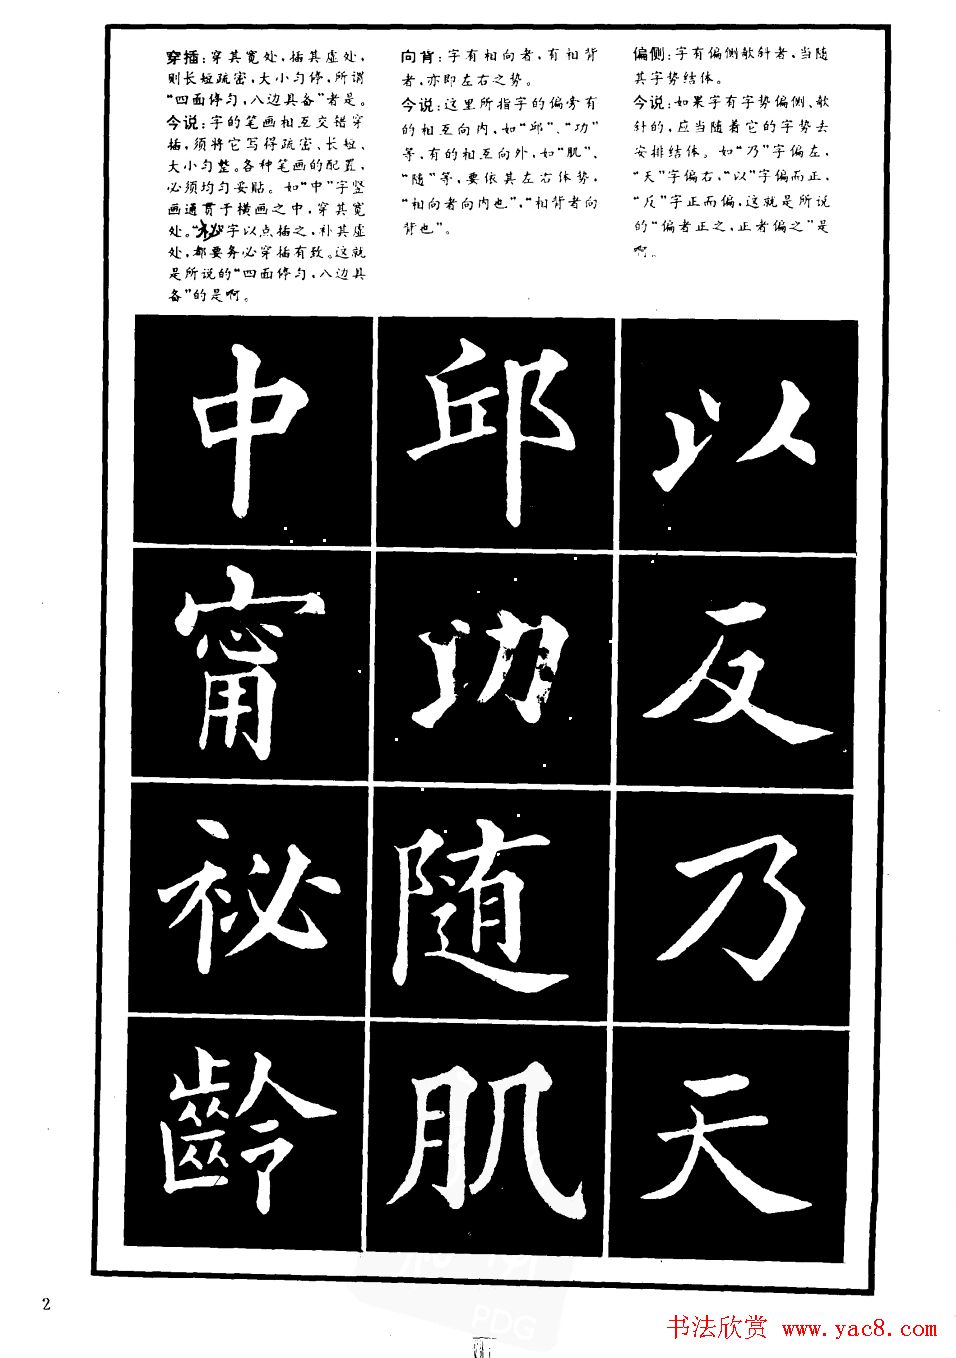 穿插:穿其宽处,插其虚处,
则长短疏密,大小匀停,所谓
“四面停匀,八边具备”者是。
今说:字的笔画相互交错穿
插,须将它写得疏密、长短、
大小匀整。各种笔画的配置,
必须均匀妥贴。如“中”字竖
画通贯于横画之中,穿其宽
处。“祕字以点插之,补其虚
处,都要务必穿插有致。这就
是所说的“四面停匀,八边具
备”的是啊。
向背:字有相向者,有相背
者,亦即左右之势。
今说:这里所指字的偏旁有
的相互向内,如“邱”、“功”
等,有的相互向外,如“肌”、
“随”等,要依其左右体势,
“相向者向内也”,“相背者向
背也”。
偏侧:字有偏侧欹斜者,当随
其字势结体。
今说:如果字有字势偏侧、欹
斜的,应当随着它的字势去
安排结体。如“乃”字偏左,
“天”字偏右,“以”字偏而正,
“反”字正而偏,这就是所说
的“偏者正之,正者偏之”是
啊。
中 邱 以
甯 功 反
祕 随 乃
齡 肌 天
2
PDG
书法欣赏 www.yac8.com